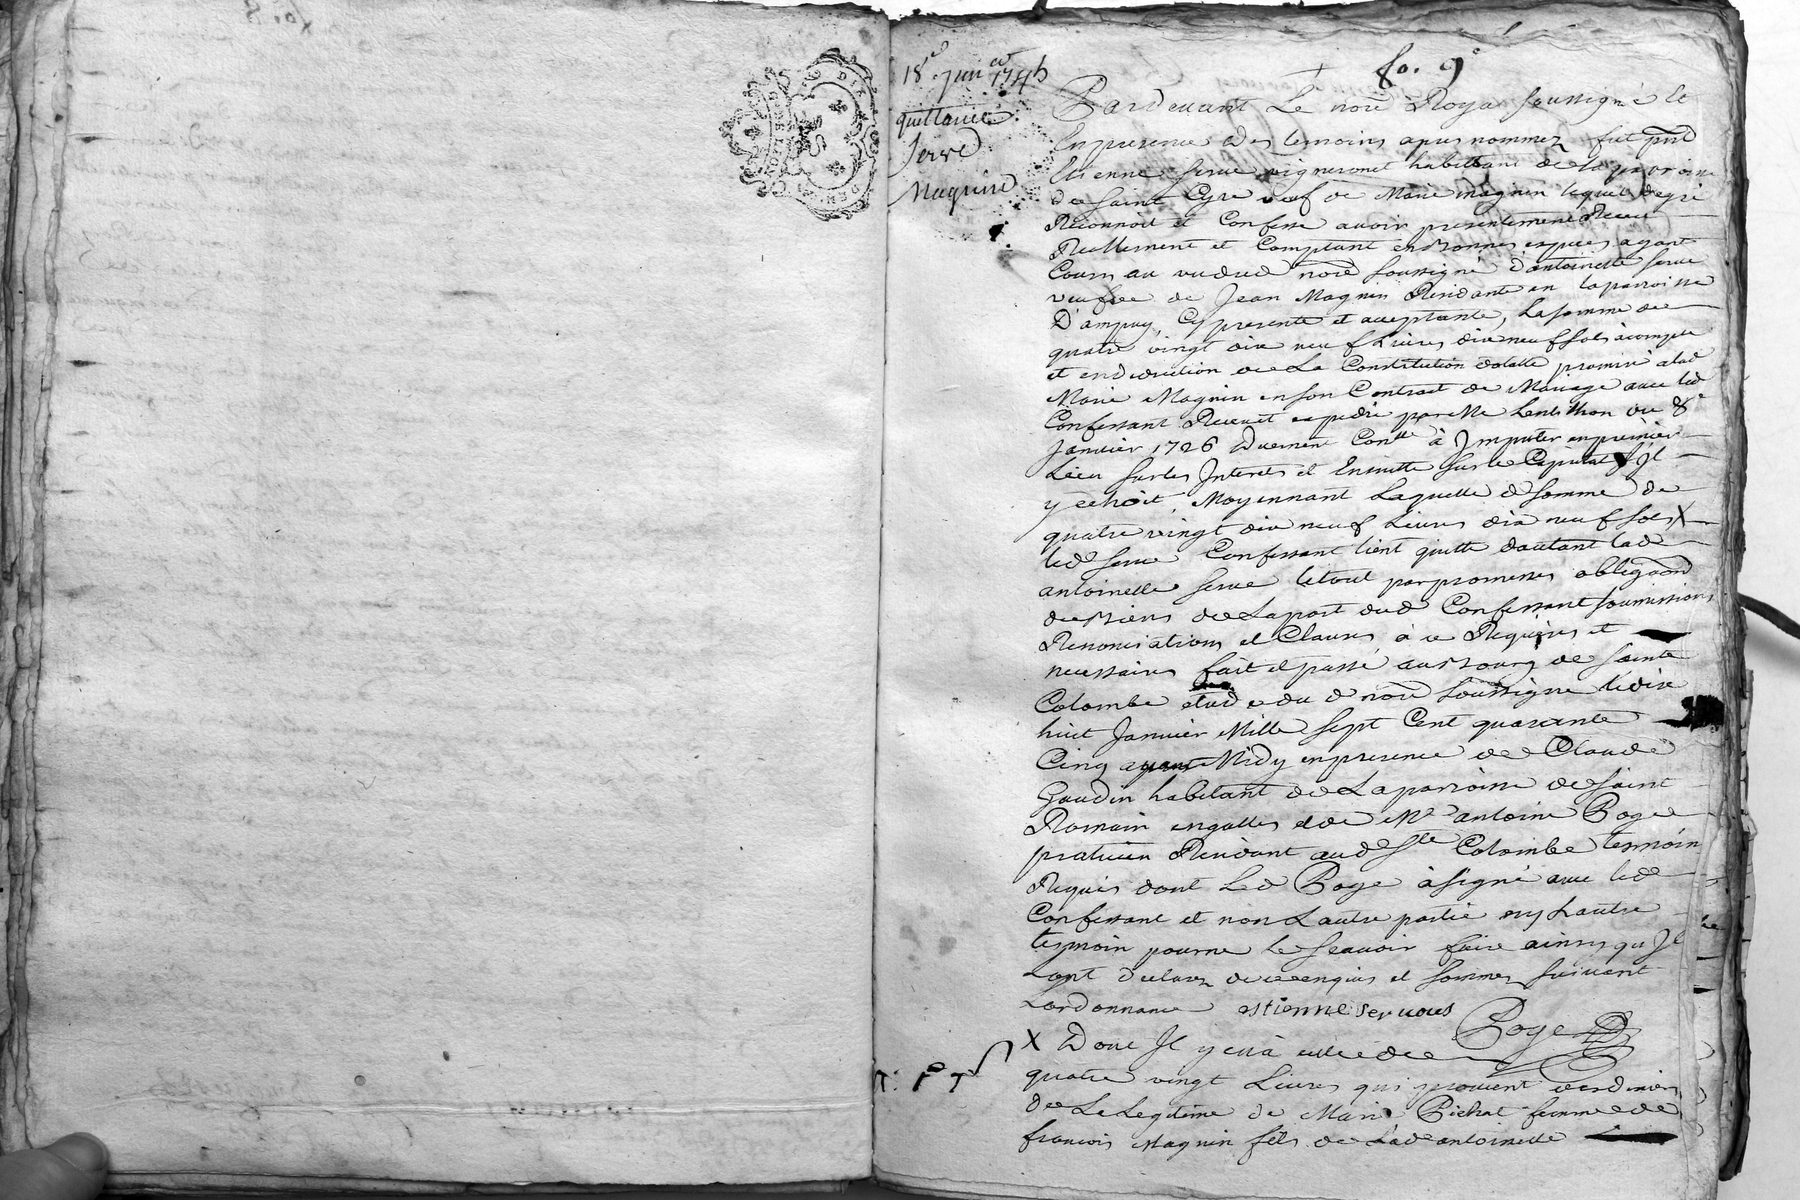 fo. 9e
18e Janer 1745
quittance
Serve
Magnin
Pardevant Le nore Royal soussigné et
En presence des temoins apres nommez fut pnt
Etienne Serve vigneront habittant de la parroisse
de Saint Cyre veuf de Marie Magnin lequel de gré
Reconnoit et Confesse avoir presentement Receu
Reellement et Comptant en bonnes especes ayant
Cours au vu dud nore soussigné d'antoinette Serve
veufve de Jean Magnin Residante en la parroisse
D'ampuy, Cy presente et acceptante, La somme de
quatre vingt dix neuf Livres dix neuf sols àcompte
et en deduction de La Constitution dotalle promise à lad
Marie Magnin en son Contrat de Mariage avec led
Confessant Receu et expedié par Me Lentillon du 8e
Janvier 1726 Duement Conllé à Imputer en premier
Lieu sur les Interets et Ensuitte sur le Capital s'Il
y echoit, Moyennant Laquelle d somme de
quatre vingt dix neuf Livres dix neuf sols X
led Serve Confessant tient quitte dautant lad
antoinette Serve le tout par promesses obligaon
de biens de La part dud Confessant soumissions
Renonciations et Clauses à ce Requises et
necessaires fait et passé au bourg de Sainte
Colombe etude du d nore soussigné le dix
huit Janvier Mille sept Cent quarante
Cinq avant Midy en presence de Claude
Gaudin habitant de La parroisse de Saint
Romain en galles et de Mr antoine Boge
praticien Residant aud Ste Colombe temoins
Requis dont Led Boge à signé avec led
Confessant et non L'autre partie ny L'autre
temoin pour ne Le sçavoir faire ainsy qu'Il
L'ont declarez de ce enquis et sommez suivant
L'ordonnance estienne servous
Boge
X Dont Il y en à celle de
quatre vingt Livres qui provient des deniers
de La Legitime de Marie Pichat femme de
francois Magnin fils de Lad antoinette